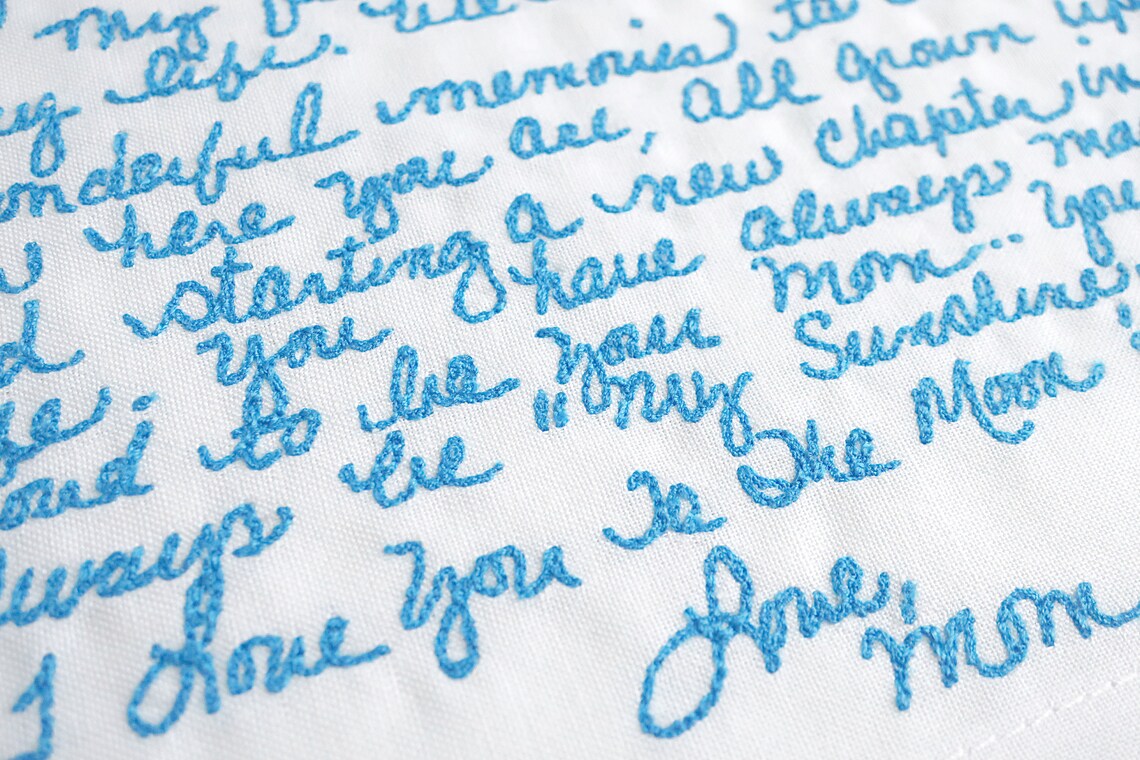 my
life.
onderful memories to
here you are, all grown up
d starting a new chapter in
fe; you have always ma
oud to be your mom... you
lways be "my Sunshine"
I love you To The Moon
Love, mom